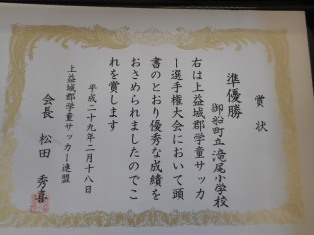 賞状
準優勝
御船町立滝尾小学校
右は上益城郡学童サッカ
ー選手権大会において頭
書のとおり優秀な成績を
おさめられましたのでこ
れを賞します
平成二十九年二月十八日
上益城郡学童サッカー連盟
会長 松田 秀喜